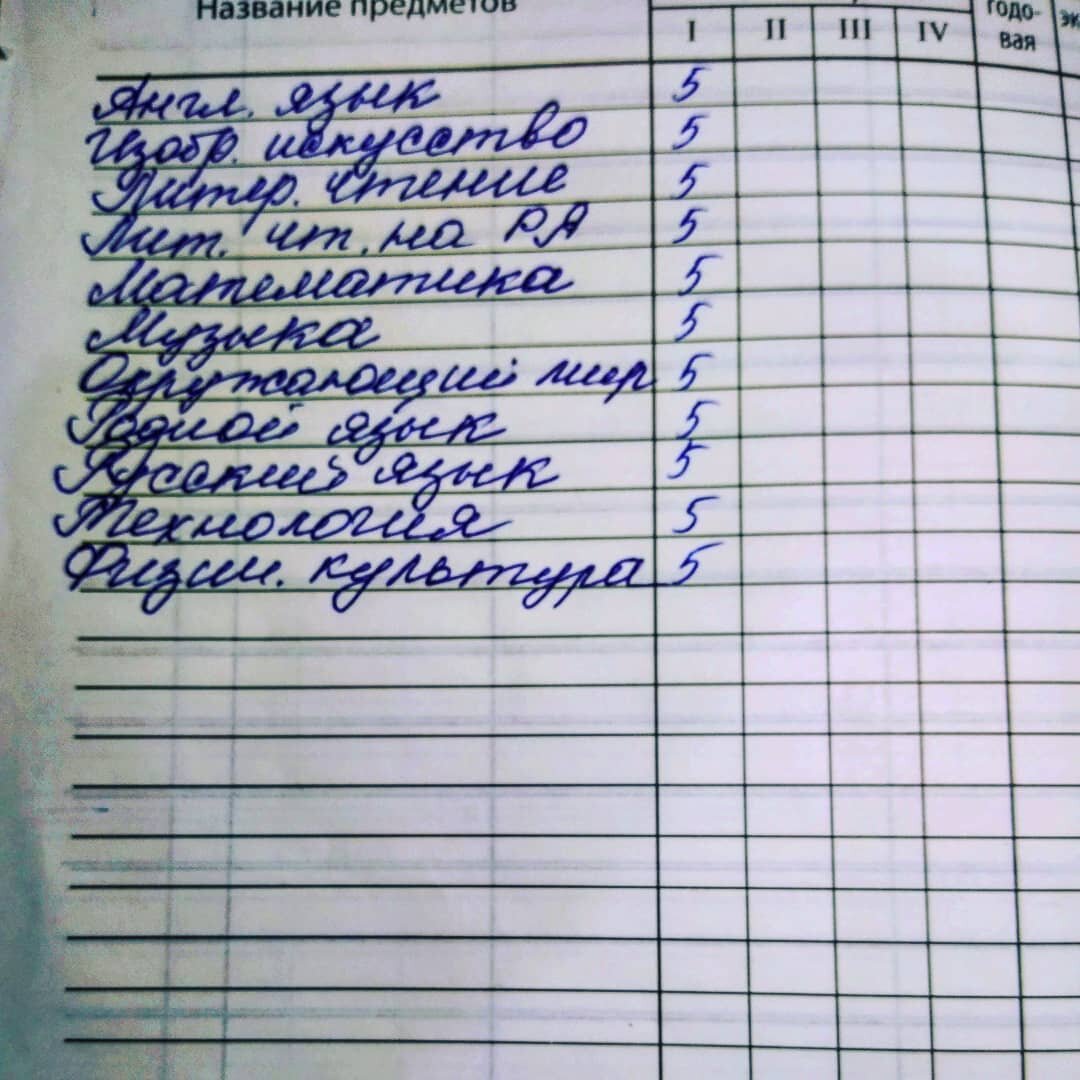 Название предметов
I II III IV годо-
вая эк
Англ. язык 5
Изобр. искусство 5
Литер. чтение 5
Лит. чт. на РЯ 5
Математика 5
Музыка 5
Окружающий мир 5
Родной язык 5
Русский язык 5
Технология 5
Физич. культура 5